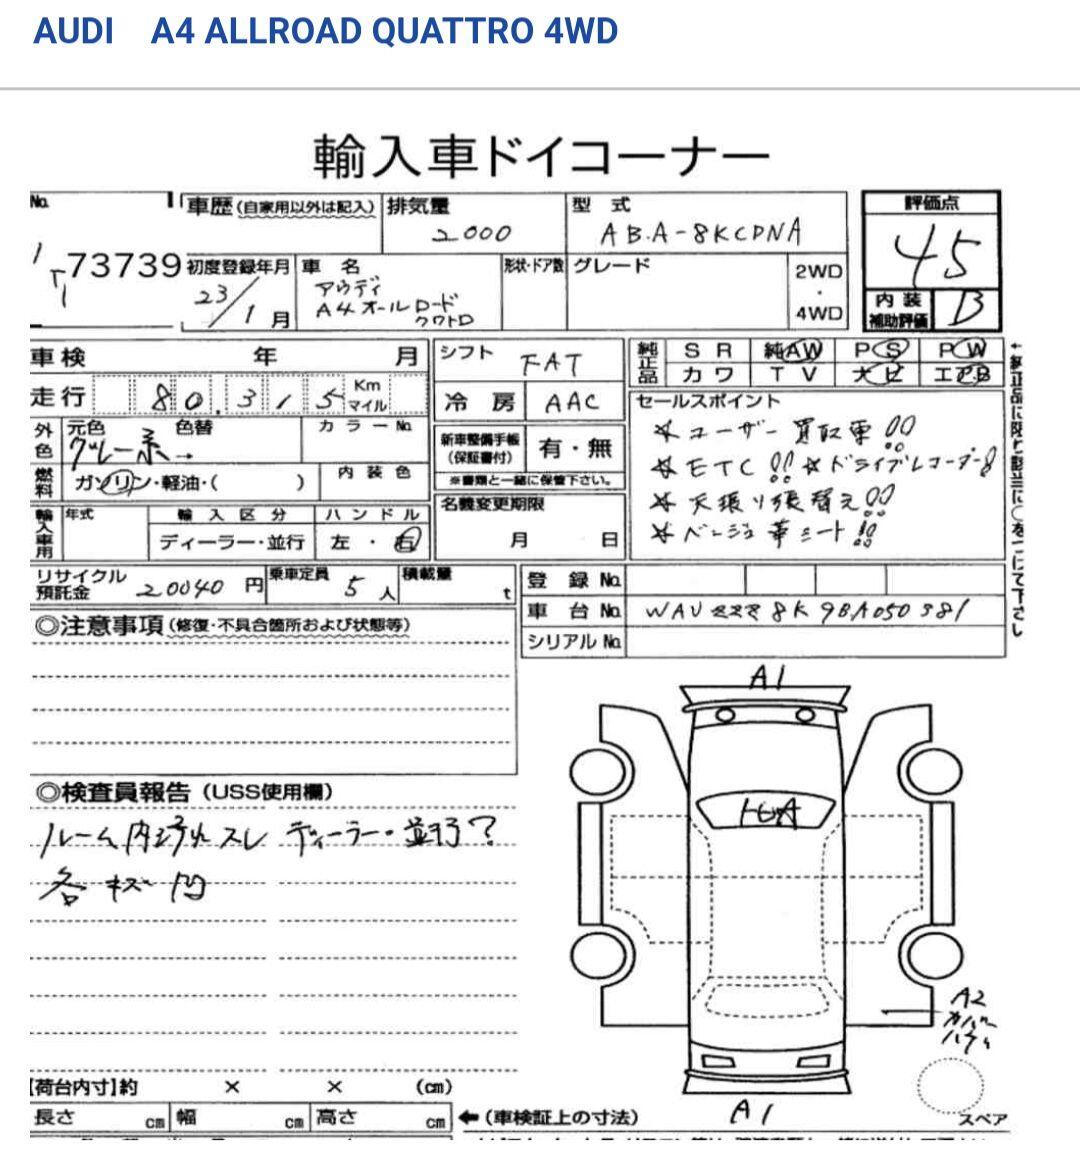 AUDI A4 ALLROAD QUATTRO 4WD
輸入車ドイコーナー
No. 車歴 (自家用以外は記入) 排気量 型式 評価点
2000 ABA-8KCDNA 45
73739 初度登録年月 車名 形状・ドア数 グレード 2WD・4WD
23/1月 アウディ A4オールロードクワトロ
内装補助評価 B
車検 年 月 シフト FAT 純正品 SR 純AW PS PW
走行 80,315 Km マイル 冷房 AAC カワ TV 大ビ エアB
外色 元色 グレー系 色替 カラーNo.
新車整備手帳 (保証書付) 有・無
※書類と一緒に保管下さい。
セールスポイント
☆ユーザー買取車!!
☆ETC!! ☆ドライブレコーダー!
☆天張り張替え!!
☆ベージュ革シート!!
燃料 ガソリン・軽油・( ) 内装色
名義変更期限 月 日
輸入車用 年式 輸入区分 ハンドル
ディーラー・並行 左・右
リサイクル預託金 20040円 乗車定員 5人 積載量 t
登録No.
車台No. WAUZZZ8K9BA050381
シリアルNo.
◎注意事項 (修復・不具合箇所および状態等)
A1
◎検査員報告 (USS使用欄)
ルーム内汚れスレ ディーラー・並行?
各キズ凹
A2
A1
スペア
【荷台内寸】約 × × (cm)
長さ cm 幅 cm 高さ cm ←(車検証上の寸法)